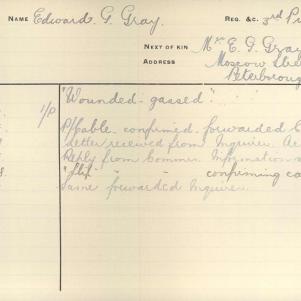 NAME Edward G. Gray. REG. &C. 3rd
NEXT OF KIN Mr E. G. Gray
ADDRESS Moscow
Peterborough
1/P "Wounded - gassed".
P/Cable. confirmed. forwarded
Letter received from Inquirer.
Reply from Commr. Information
"Slip" - - confirming
Same forwarded Inquirer.